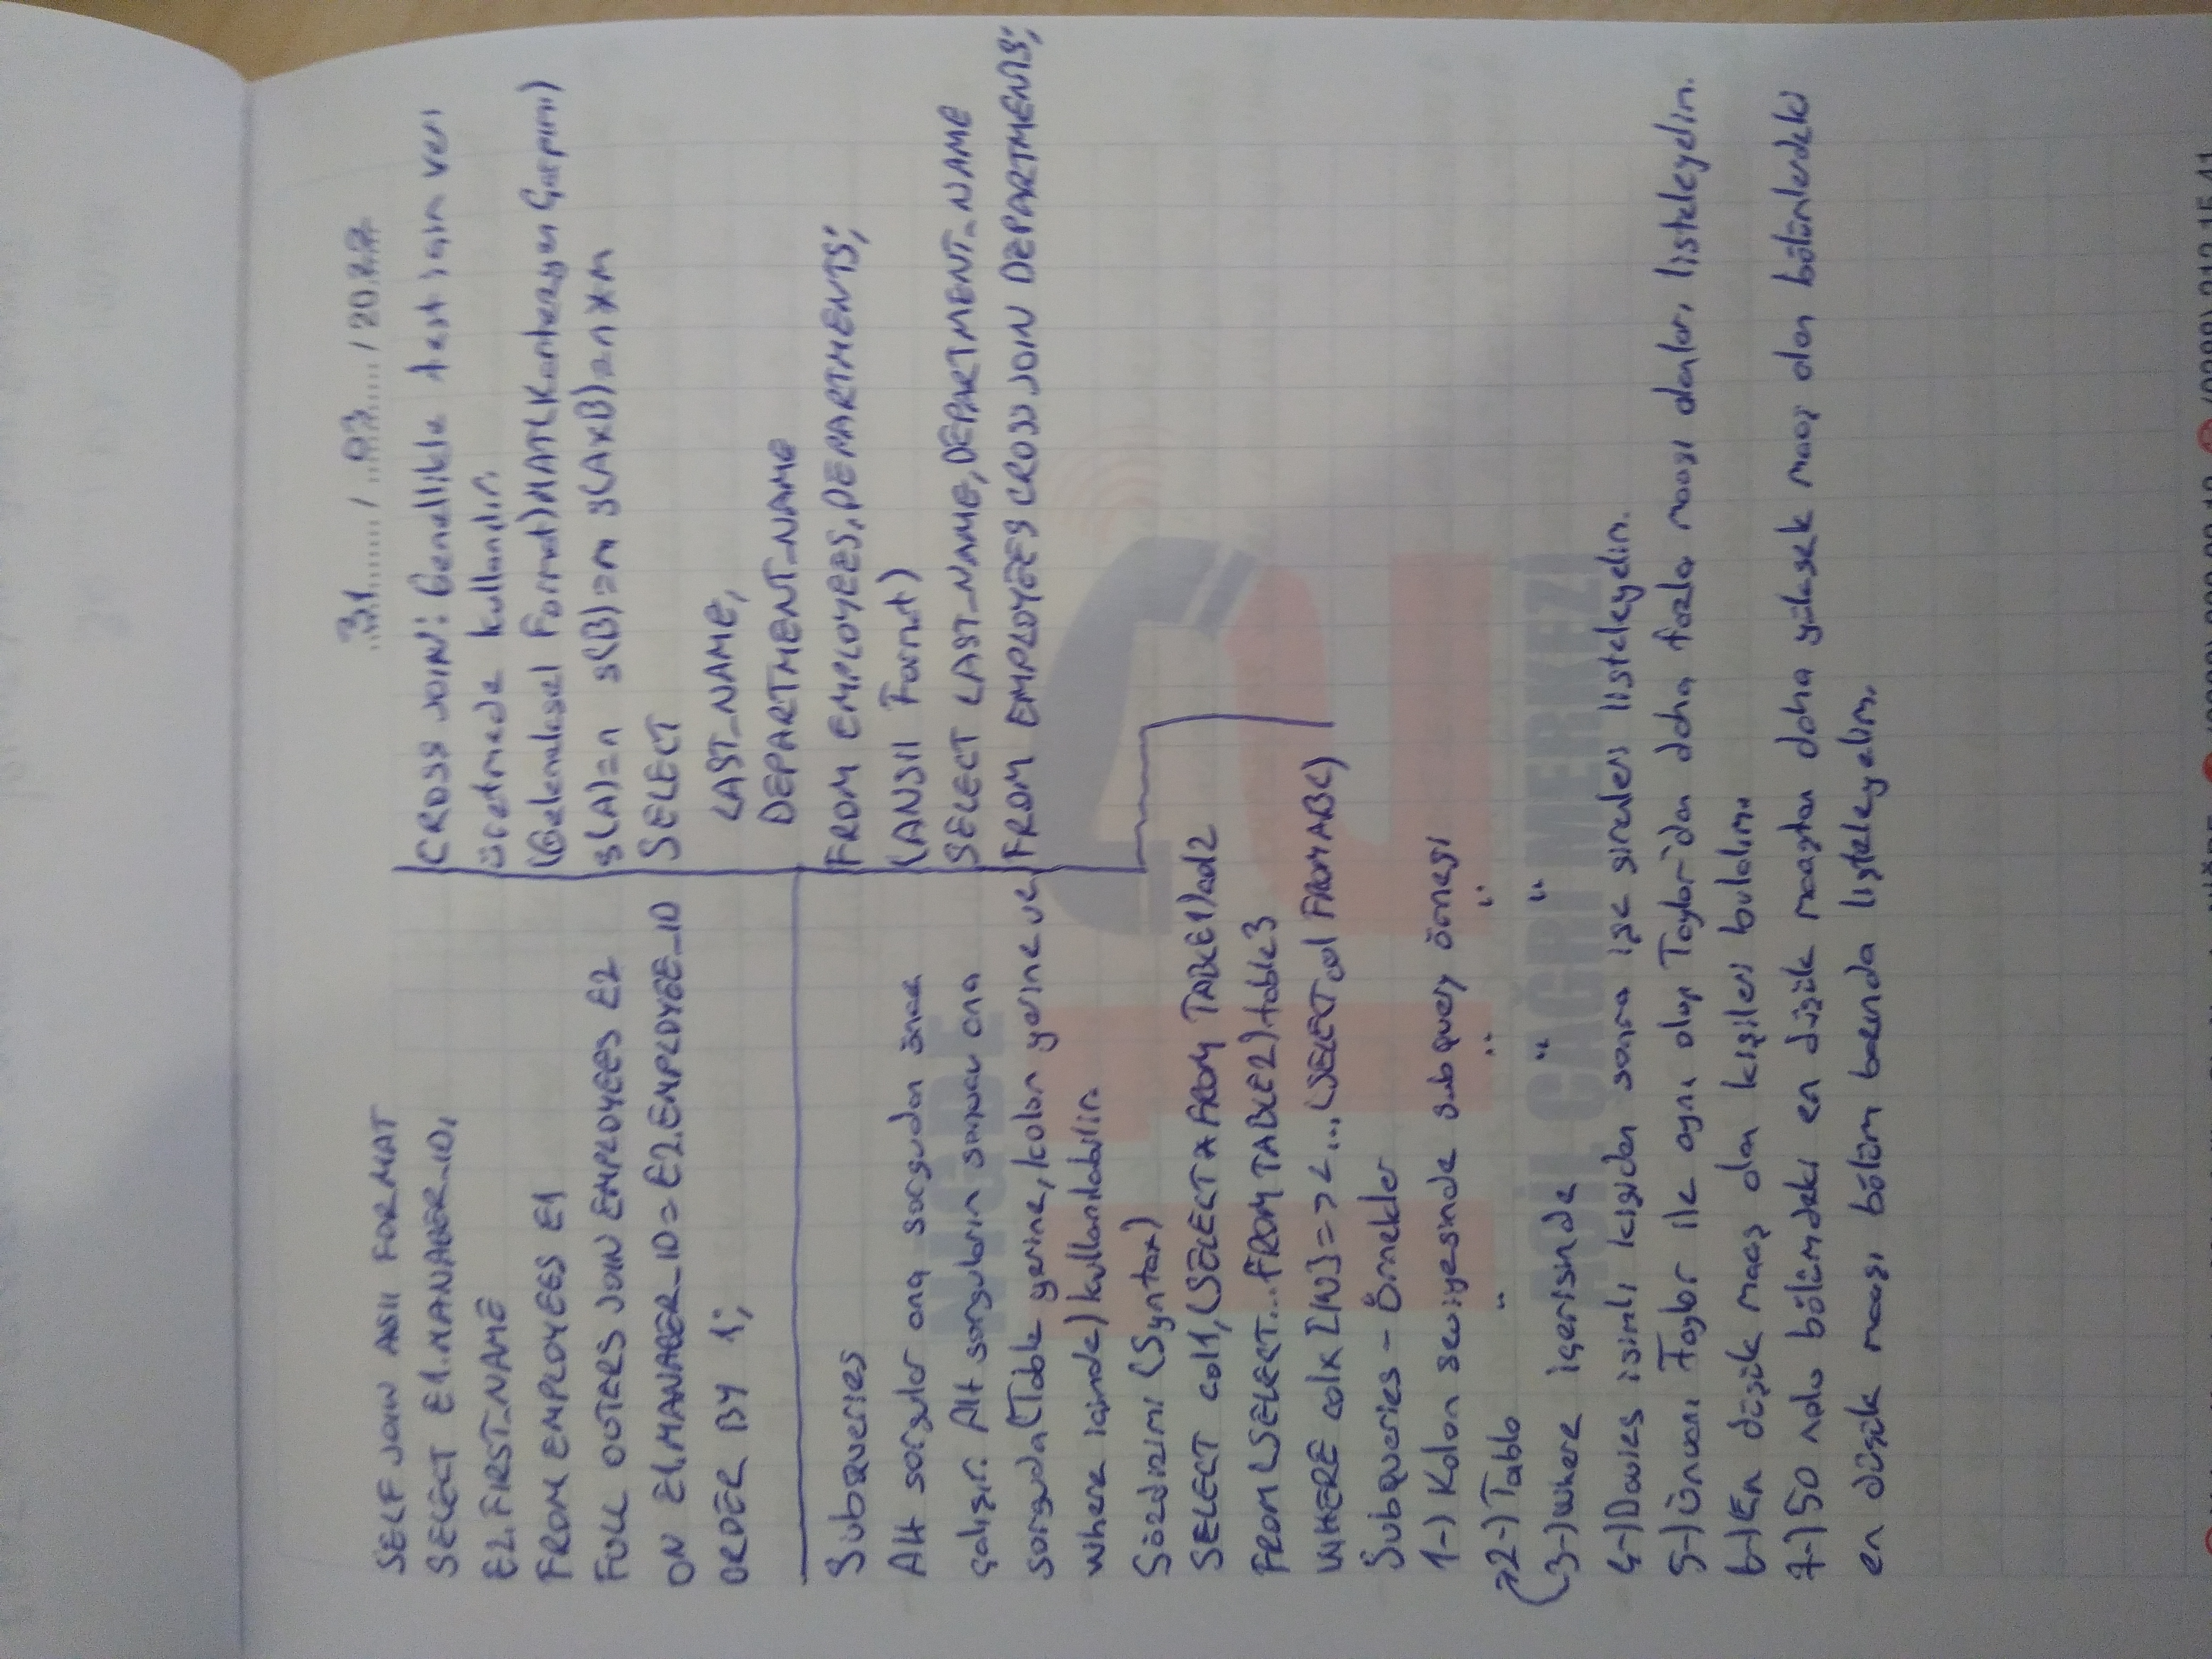 31 / 03 / 2022
SELF JOIN ASII FORMAT
SELECT E1.MANAGER_ID,
E2.FIRST_NAME
FROM EMPLOYEES E1
FULL OUTERS JOIN EMPLOYEES E2
ON E1.MANAGER_ID = E2.EMPLOYEE_ID
ORDER BY 1;
CROSS JOIN: Genellikle test için veri
üretmede kullanılır.
(Geleneksel Format) MAT(Kartezyen Çarpımı)
s(A)=n s(B)=m s(AxB)=n*m
SELECT
LAST_NAME,
DEPARTMENT_NAME
FROM EMPLOYEES,DEPARTMENTS;
(ANSII Format)
SELECT LAST_NAME,DEPARTMENT_NAME
FROM EMPLOYEES CROSS JOIN DEPARTMENTS;
Subqueries
Alt sorgular ana sorgudan önce
çalışır. Alt sorguların sonucu ana
sorguda(Table yerine, kolon yerine ve
where içinde) kullanılabilir.
Sözdizimi (Syntax)
SELECT col1,(SELECT * FROM TABLE1)col2
FROM(SELECT...FROM TABLE2)table3
WHERE colx [IN]=><...(SELECT col FROM ABC)
Subqueries - Örnekler
1-) Kolon seviyesinde subquery örneği
2-) Tablo " " "
3-) Where içerisinde " "
4-) Davies isimli kişiden sonra işe girenleri listeleyelim.
5-) Ünvanı Taylor ile aynı olup Taylor'dan daha fazla maaşı olanları listeleyelim.
6-) En düşük maaş alan kişileri bulalım.
7-) 50 nolu bölümdeki en düşük maaştan daha yüksek maaş alan bölümlerdeki
en düşük maaşı bölüm bazında listeleyelim.
NİĞDE
112
ACİL ÇAĞRI MERKEZİ